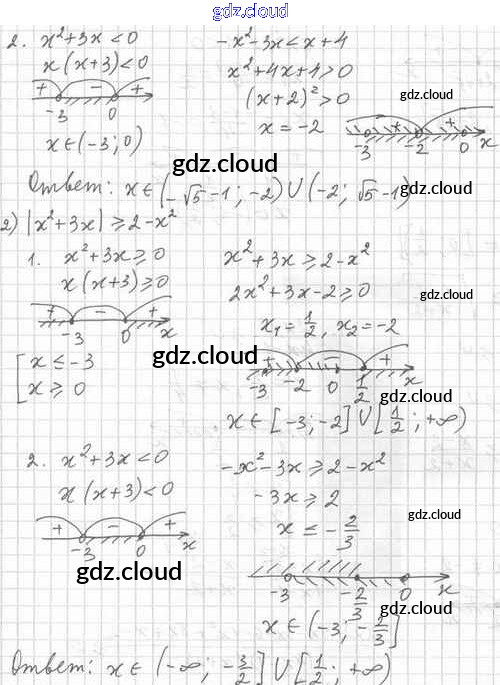 gdz.cloud
2. x²+3x<0
x(x+3)<0
+ − +
-3 0
x∈(-3;0)
-x²-3x<x+4
x²+4x+4>0
(x+2)²>0
x=-2
gdz.cloud
+ +
-3 -2 0
gdz.cloud
gdz.cloud
Ответ: x∈(-√5-1; -2)∪(-2; √5-1)
2) |x²+3x|⩾2-x²
1. x²+3x⩾0
x(x+3)⩾0
+ − +
-3 0 x
x≤-3
x⩾0
gdz.cloud
x²+3x⩾2-x²
2x²+3x-2⩾0
gdz.cloud
x₁=1/2, x₂=-2
+ − +
-3 -2 0 1/2 x
gdz.cloud
x∈[-3;-2]∪[1/2; +∞)
2. x²+3x<0
x(x+3)<0
+ − +
-3 0 x
gdz.cloud
-x²-3x⩾2-x²
-3x⩾2
gdz.cloud
x≤-2/3
-3 -2/3 0 x
gdz.cloud
x∈(-3; -2/3]
Ответ: x∈(-∞; -3/2]∪[1/2; +∞)